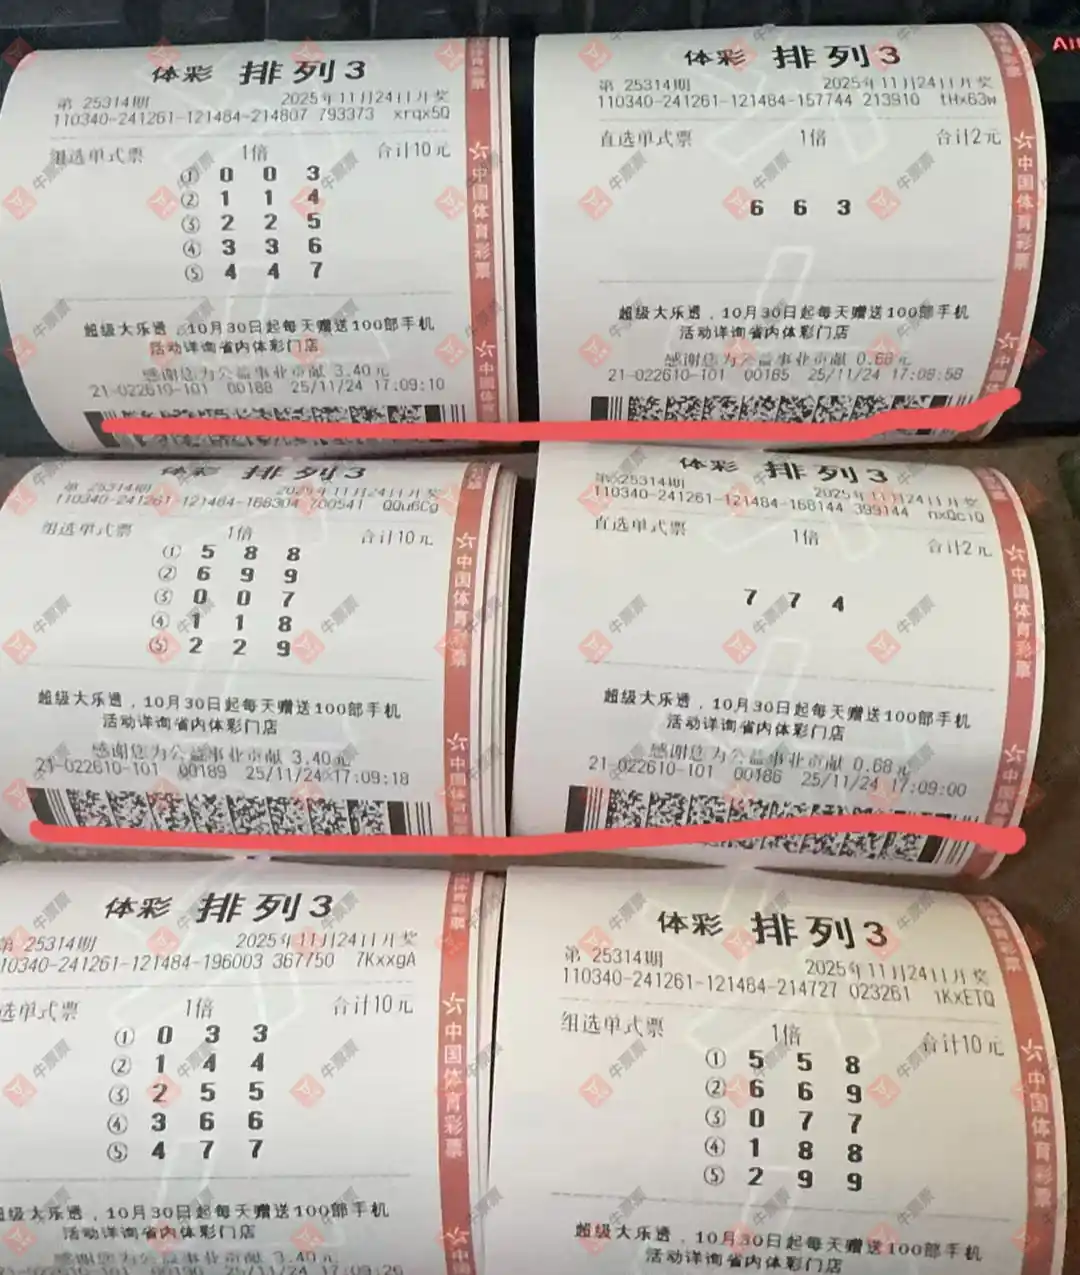 体彩 排列3
第 25314期 2025年11月24日开奖
110340-241261-121484-214807 793373 xrqx5Q
组选单式票 1倍 合计10元
① 0 0 3
② 1 1 4
③ 2 2 5
④ 3 3 6
⑤ 4 4 7
超级大乐透，10月30日起每天赠送100部手机
活动详询省内体彩门店
感谢您为公益事业贡献 3.40元
21-022610-101 00188 25/11/24 17:09:10
中国体育彩票
体彩 排列3
第 25314期 2025年11月24日开奖
110340-241261-121484-157744 213910 tHx63w
直选单式票 1倍 合计2元
6 6 3
超级大乐透，10月30日起每天赠送100部手机
活动详询省内体彩门店
感谢您为公益事业贡献 0.68元
21-022610-101 00185 25/11/24 17:08:58
中国体育彩票
体彩 排列3
第 25314期 2025年11月24日开奖
110340-241261-121484-168304 760541 QQu6Cg
组选单式票 1倍 合计10元
① 5 8 8
② 6 9 9
③ 0 0 7
④ 1 1 8
⑤ 2 2 9
超级大乐透，10月30日起每天赠送100部手机
活动详询省内体彩门店
感谢您为公益事业贡献 3.40元
21-022610-101 00189 25/11/24 17:09:18
中国体育彩票
体彩 排列3
第 25314期 2025年11月24日开奖
110340-241261-121484-168144 399144 nxQciQ
直选单式票 1倍 合计2元
7 7 4
超级大乐透，10月30日起每天赠送100部手机
活动详询省内体彩门店
感谢您为公益事业贡献 0.68元
21-022610-101 00186 25/11/24 17:09:00
中国体育彩票
体彩 排列3
第 25314期 2025年11月24日开奖
10340-241261-121484-196003 367750 7KxxgA
选单式票 1倍 合计10元
① 0 3 3
② 1 4 4
③ 2 5 5
④ 3 6 6
⑤ 4 7 7
级大乐透，10月30日起每天赠送100部手机
活动详询省内体彩门店
感谢您为公益事业贡献 3.40元
00190 25/11/24 17:09:26
中国体育彩票
体彩 排列3
第 25314期 2025年11月24日开奖
110340-241261-121484-214727 023261 1KxETQ
组选单式票 1倍 合计10元
① 5 5 8
② 6 6 9
③ 0 7 7
④ 1 8 8
⑤ 2 9 9
超级大乐透，10月30日起每天赠送100部手机
活动详询省内体彩门店
中国体育彩票
牛票票